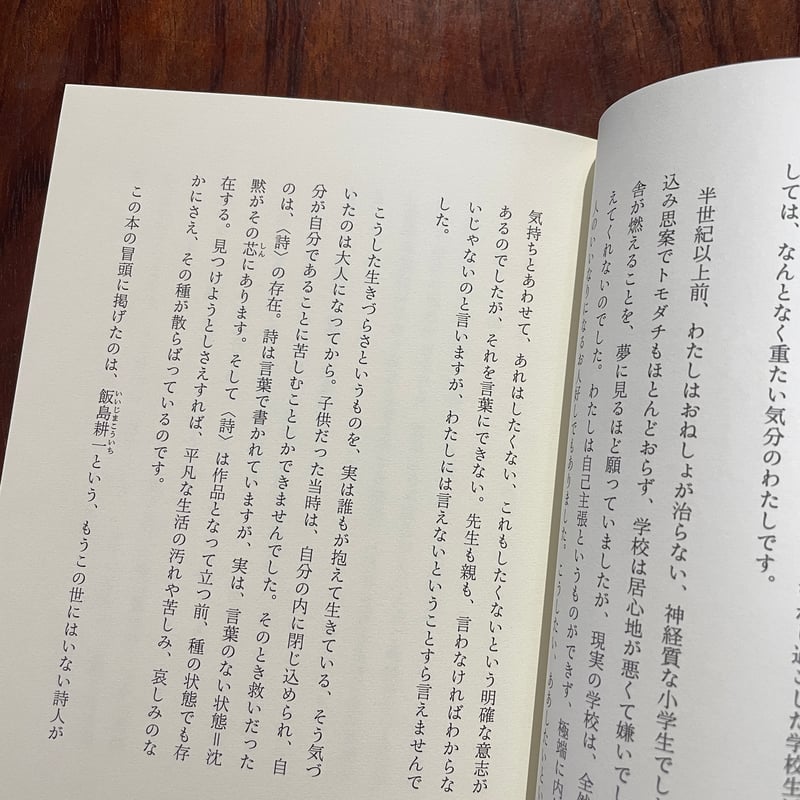 しては、なんとなく重たい気分のわたしです。
半世紀以上前、わたしはおねしょが治らない、神経質な小学生でし
込み思案でトモダチもほとんどおらず、学校は居心地が悪くて嫌いでし
舎が燃えることを、夢に見るほど願っていましたが、現実の学校は、全然
えてくれないのでした。わたしは自己主張というものができず、極端に内
人のいいなりになるお人好しでもありました。こうしたい、ああしたいとい
気持ちとあわせて、あれはしたくない、これもしたくないという明確な意志が
あるのでしたが、それを言葉にできない。先生も親も、言わなければわからな
いじゃないのと言いますが、わたしには言えないということすら言えませんで
した。
こうした生きづらさというものを、実は誰もが抱えて生きている、そう気づ
いたのは大人になってから。子供だった当時は、自分の内に閉じ込められ、自
分が自分であることに苦しむことしかできませんでした。そのとき救いだった
のは、〈詩〉の存在。詩は言葉で書かれていますが、実は、言葉のない状態＝沈
黙がその芯にあります。そして〈詩〉は作品となって立つ前、種の状態でも存
在する。見つけようとしさえすれば、平凡な生活の汚れや苦しみ、哀しみのな
かにさえ、その種が散らばっているのです。
この本の冒頭に掲げたのは、飯島耕一という、もうこの世にはいない詩人が